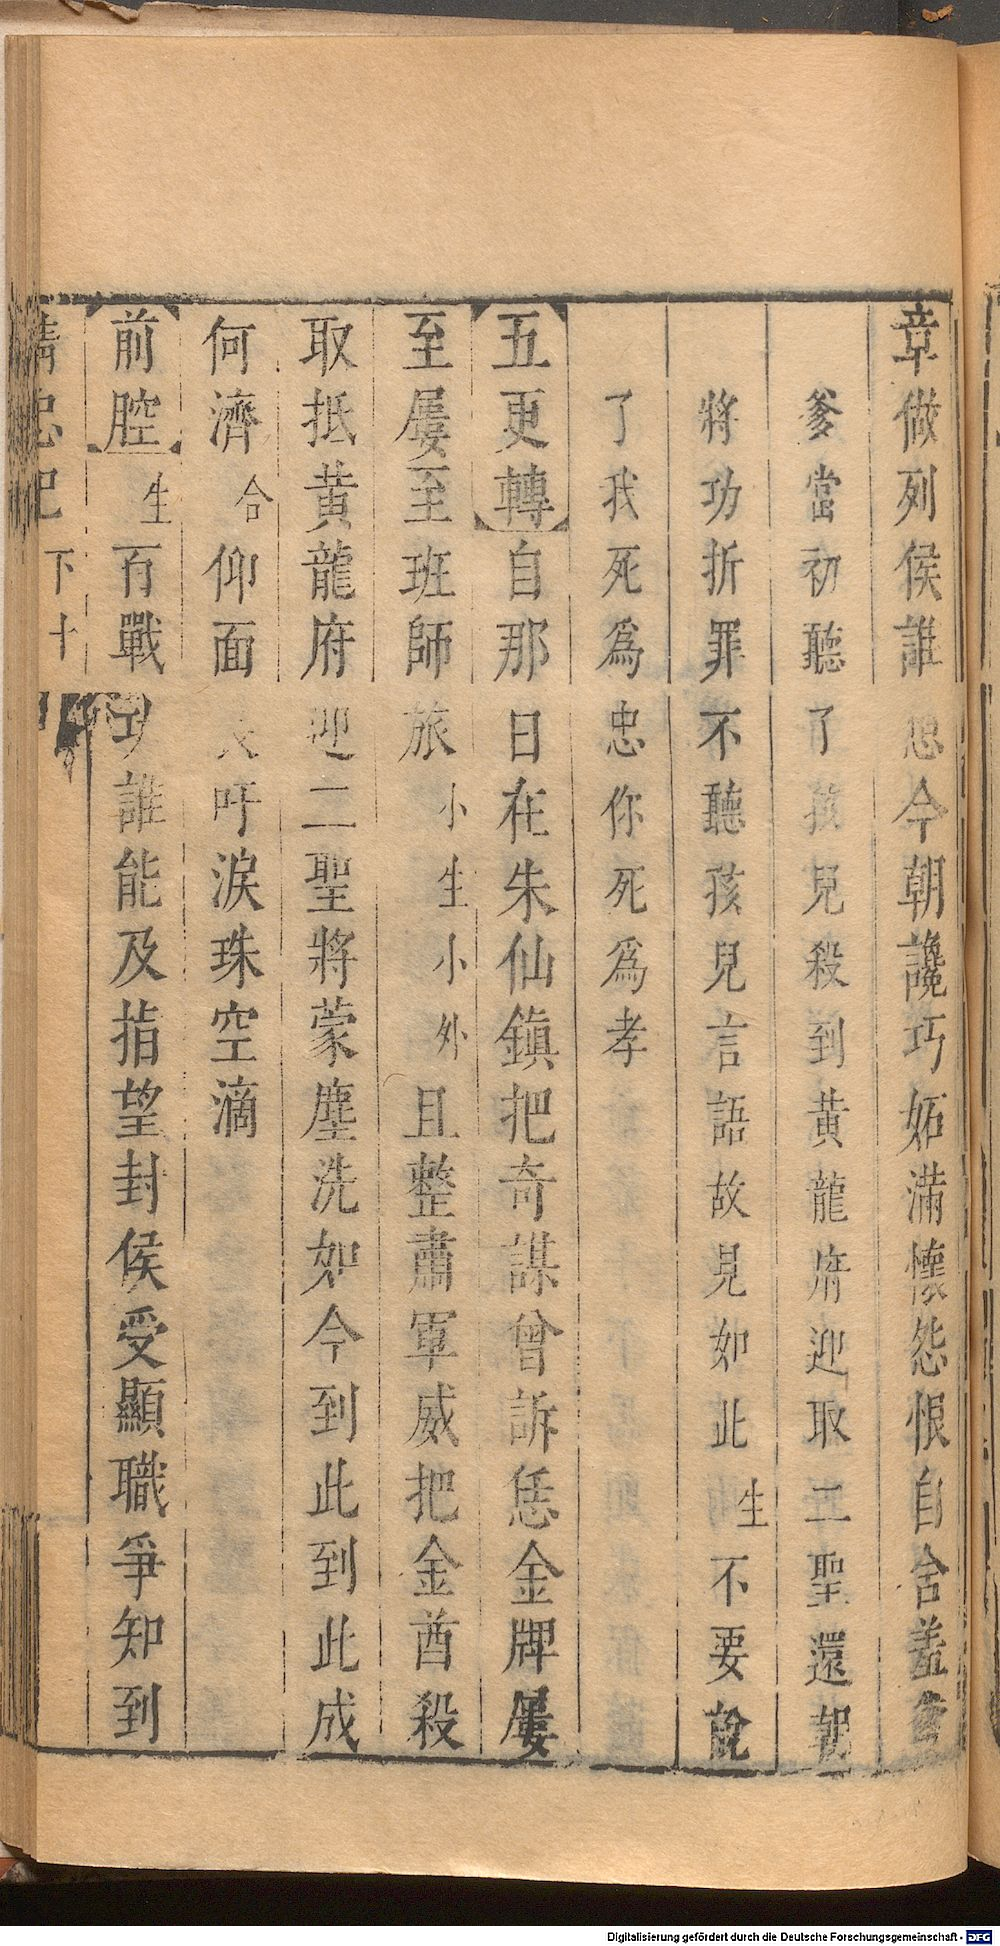 章做列侯誰思今朝讒巧妬滿懷怨恨自舍羞
爹當初聽了孩兒殺到黃龍府迎取二聖還朝
將功折罪不聽孩兒言語故見如此生不要說
了我死爲忠你死爲孝
五更轉自那日在朱仙鎮把奇謀曾訴恁金牌屢
至屢至班師旅小生小外且整肅軍威把金酋殺
取抵黃龍府迎二聖將蒙塵洗如今到此到此成
何濟合仰面吁淚珠空滴
前腔生百戰功誰能及指望封侯受顯職爭知到
精忠記
下十
Digitalisierung gefördert durch die Deutsche Forschungsgemeinschaft - DFG